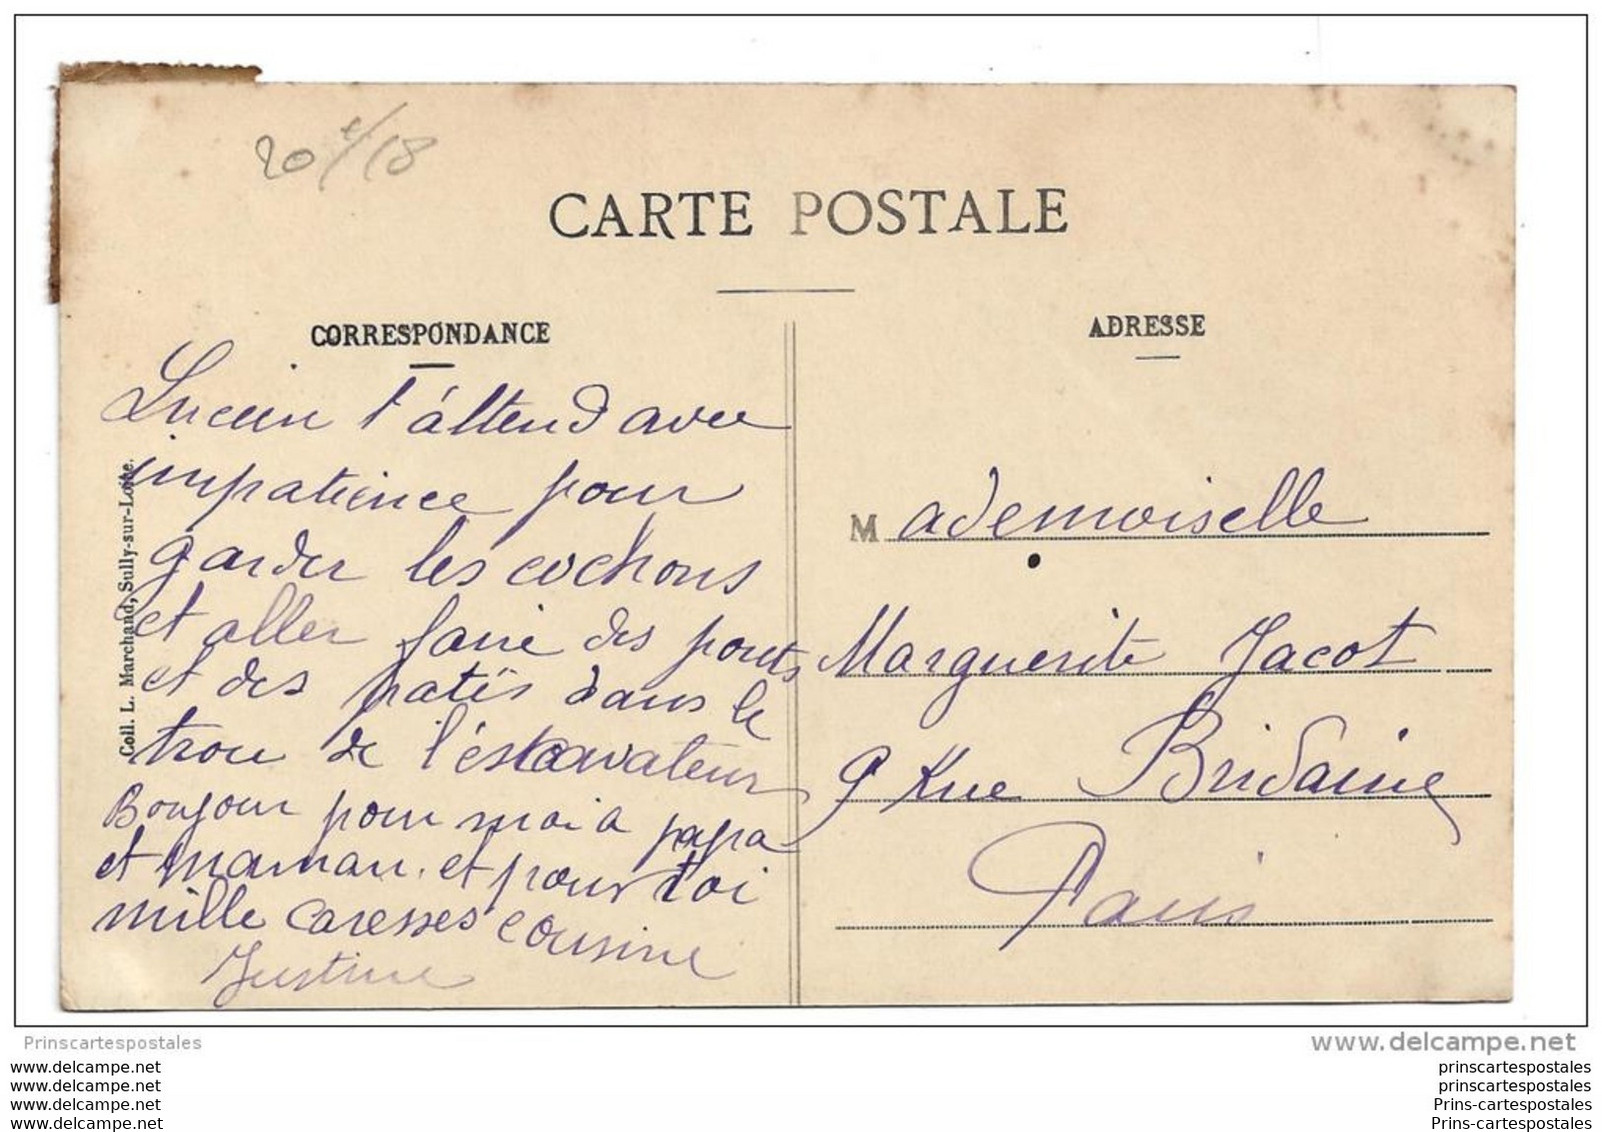 CARTE POSTALE
CORRESPONDANCE
Lucien t'attend avec
impatience pour
garder les cochons
et aller faire des ponts
et des patés dans le
trou de l'éscavateur
Bonjour pour moi a papa
et maman. et pour toi
mille caresses cousine
Justine
Coll. L. Marchand, Sully-sur-Loire.
ADRESSE
Mademoiselle
Marguerite Jacot
9 Rue Bridaine
Paris
Prinscartespostales
www.delcampe.net
www.delcampe.net
www.delcampe.net
www.delcampe.net
www.delcampe.net
prinscartespostales
prinscartespostales
Prins-cartespostales
Prins-cartespostales